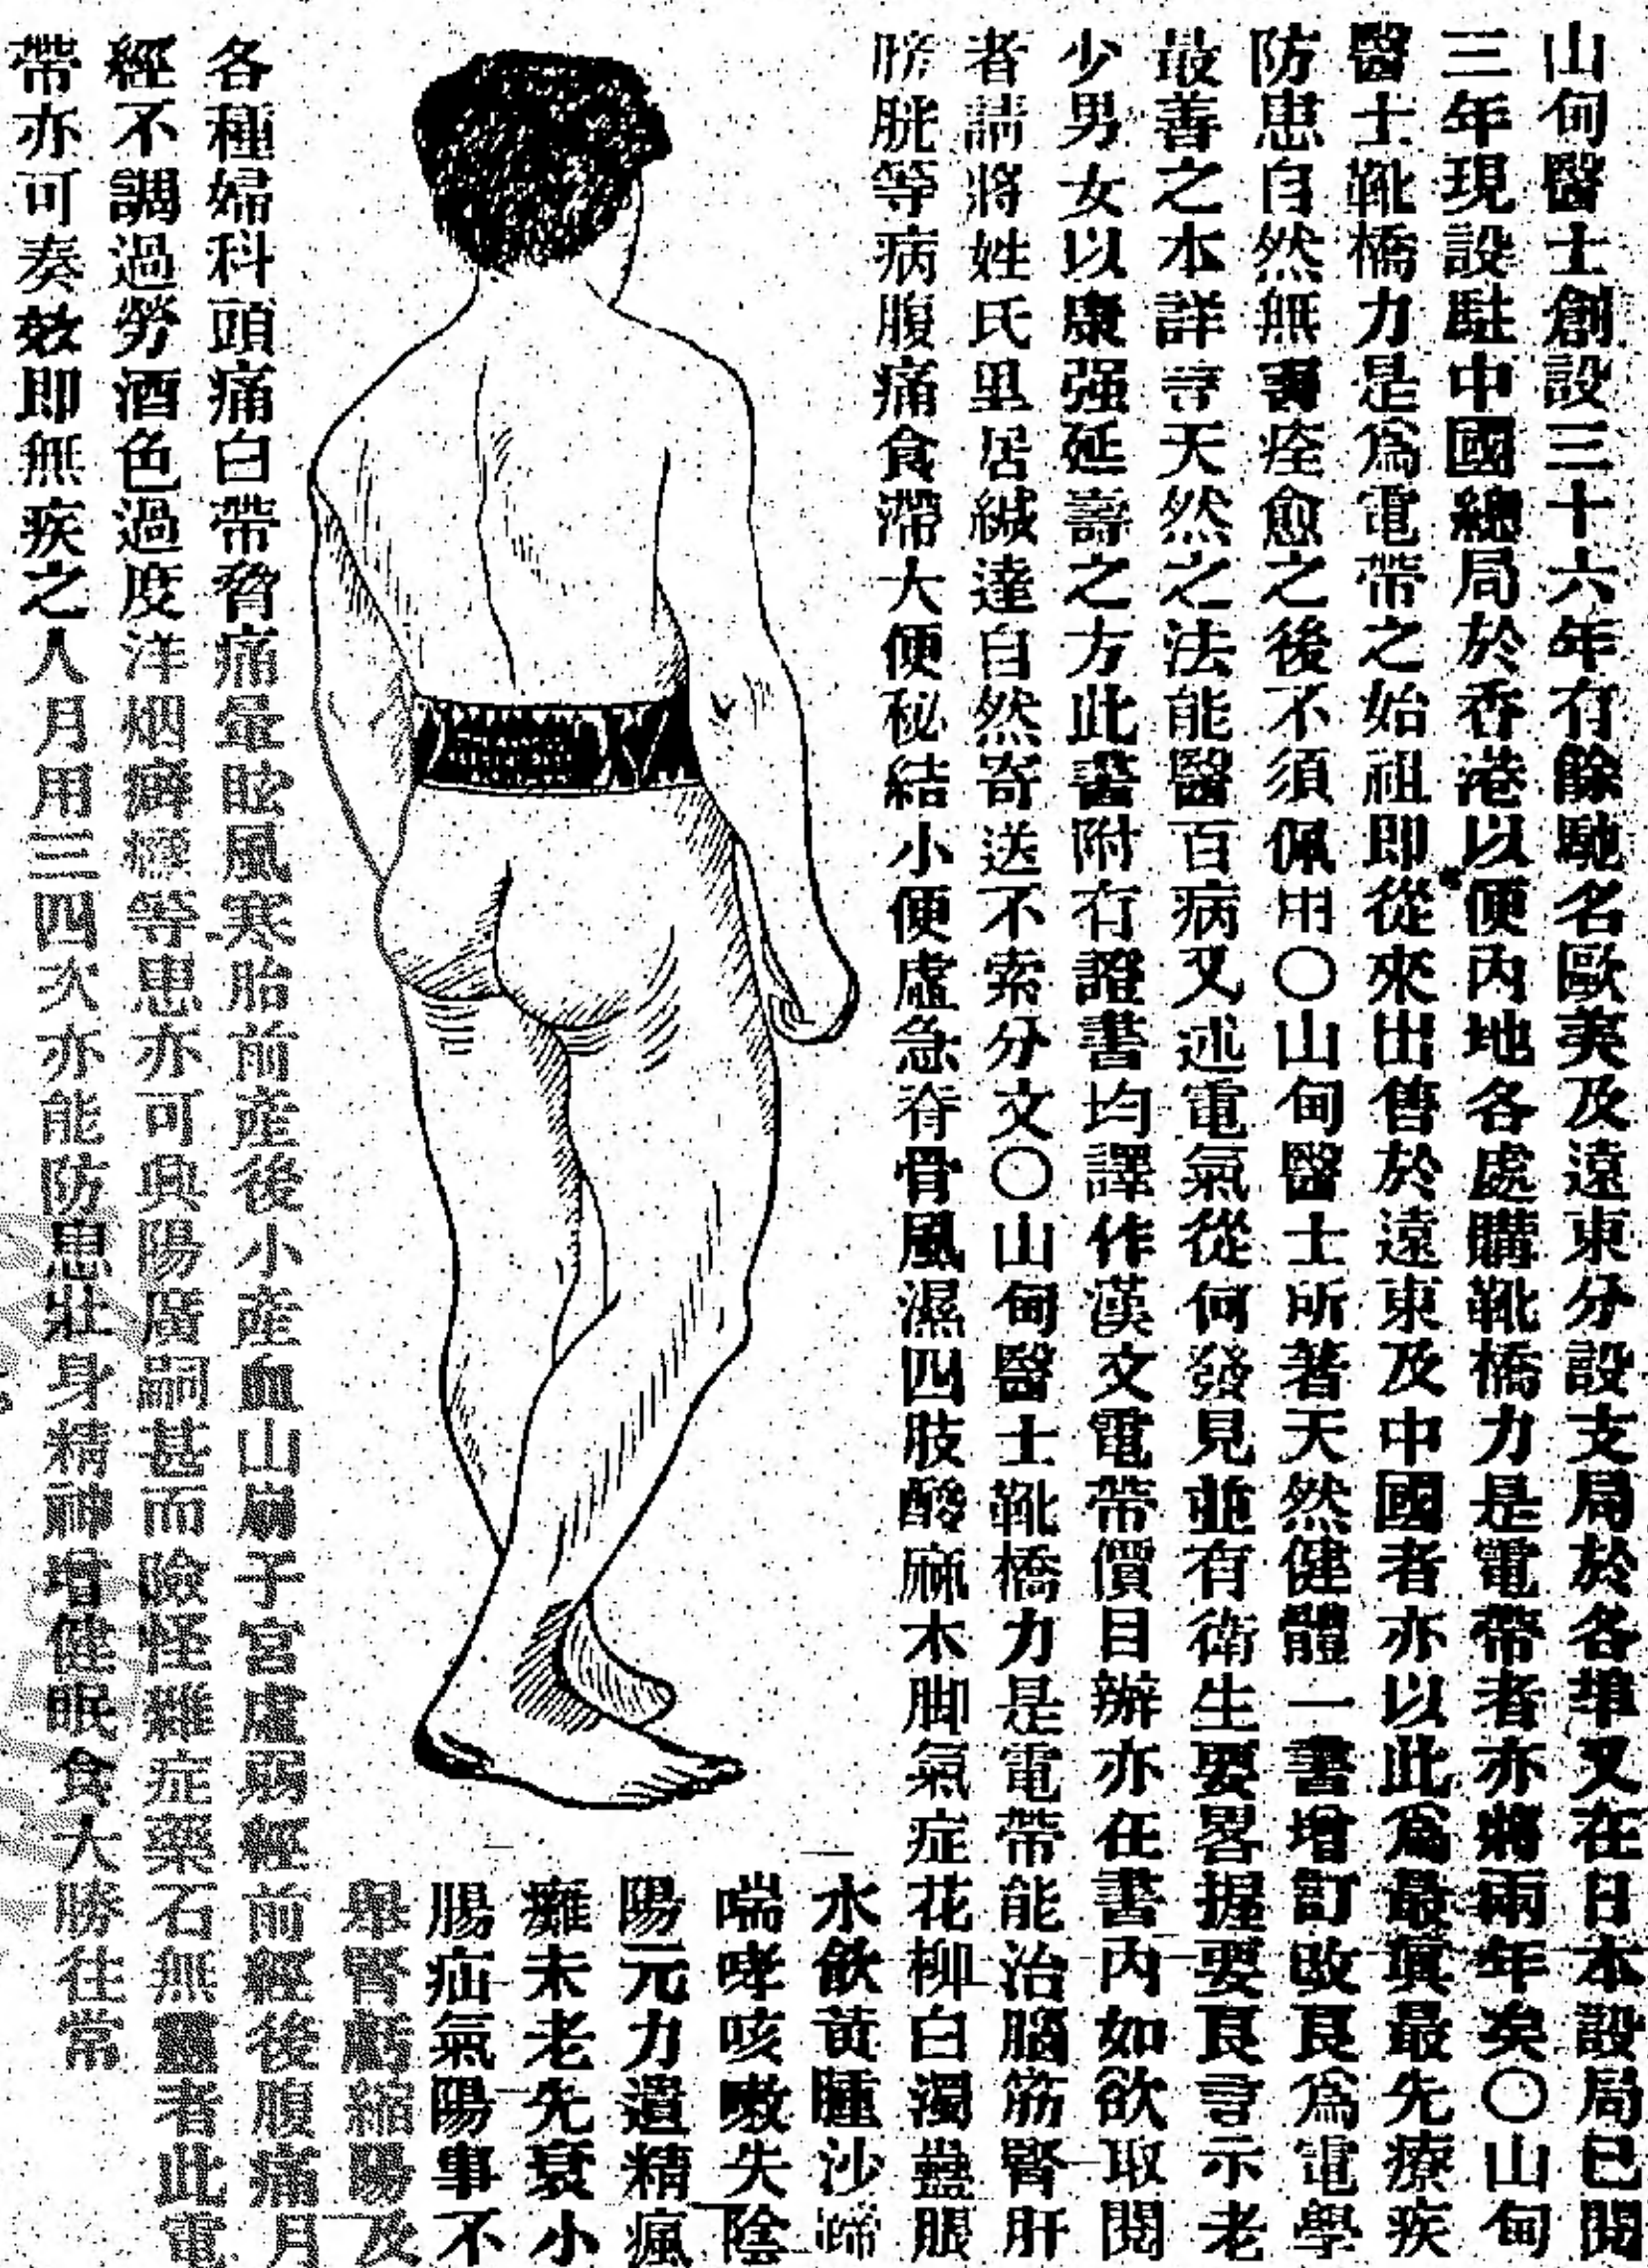 山甸醫士創設三十六年有餘馳名歐美及遠東分設支局於各埠又在日本設局已閱
三年現設駐中國總局於香港以便內地各處購靴橋力是電帶者亦將兩年矣〇山甸
醫士靴橋力是為電帶之始祖即從來出售於遠東及中國者亦以此為最眞最先療疾
防患自然無害痊愈之後不須佩用〇山甸醫士所著天然健體一書增訂改良為電學
最善之本詳言天然之法能醫百病又述電氣從何發見並有衛生要畧握要良言示老
少男女以康强延壽之方此書附有證書均譯作漢文電帶價目辦亦在書內如欲取閱
者請將姓氏里居緘達自然寄送不索分文〇山甸醫士靴橋力是電帶能治腦筋腎肝
膀胱等病腹痛食滯大便秘結小便虛急脊骨風濕四肢酸麻木脚氣症花柳白濁蠱脹
水飲黃腫沙
喘哮咳嗽失陰
陽元力遺精瘋
癱未老先衰小
腸疝氣陽事不
舉腎虧縮陽及
各種婦科頭痛白帶脅痛暈眩風寒胎前產後小產血山崩子宮虛弱經前經後腹痛月
經不調過勞酒色過度洋烟癖癮等患亦可興陽廣嗣甚而險怪雜症藥石無靈者此電
帶亦可奏效即無疾之人月用三四次亦能防患壯身精神增健眠食大勝往常